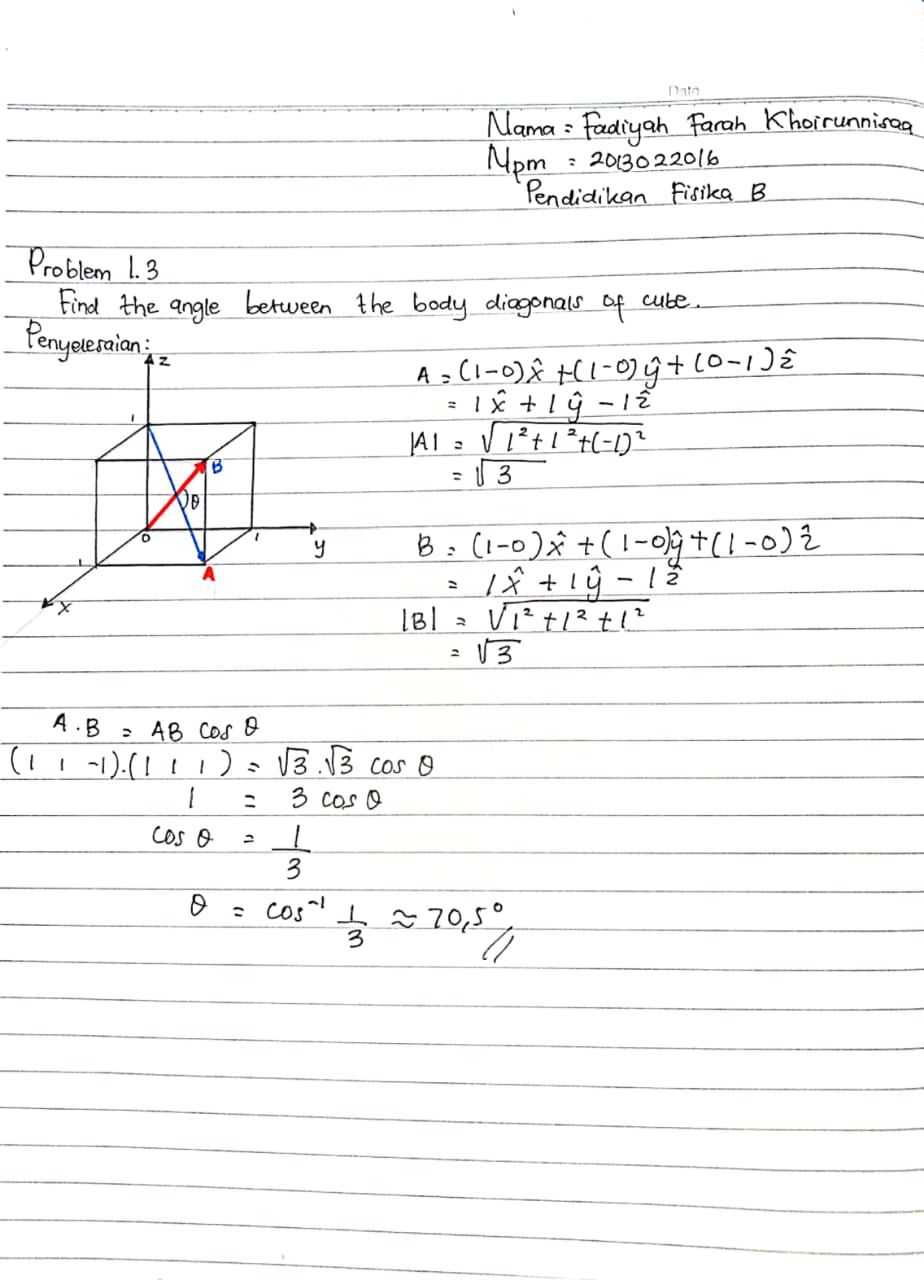 Date
Nama = Fadiyah Farah Khoirunnisaa
Npm = 2013022016
Pendidikan Fisika B
Problem 1.3
Find the angle between the body diagonals of cube.
Penyelesaian:
z
1
B
θ
0
1
y
1
A
x
A = (1-0)x̂ + (1-0)ŷ + (0-1)ẑ
= 1x̂ + 1ŷ - 1ẑ
|A| = √1²+1²+(-1)²
= √3
B = (1-0)x̂ + (1-0)ŷ + (1-0)ẑ
= 1x̂ + 1ŷ - 1ẑ
|B| = √1²+1²+1²
= √3
A.B = AB cos θ
(1 1 -1).(1 1 1) = √3.√3 cos θ
1 = 3 cos θ
cos θ = 1/3
θ = cos⁻¹ 1/3 ≈ 70,5°//